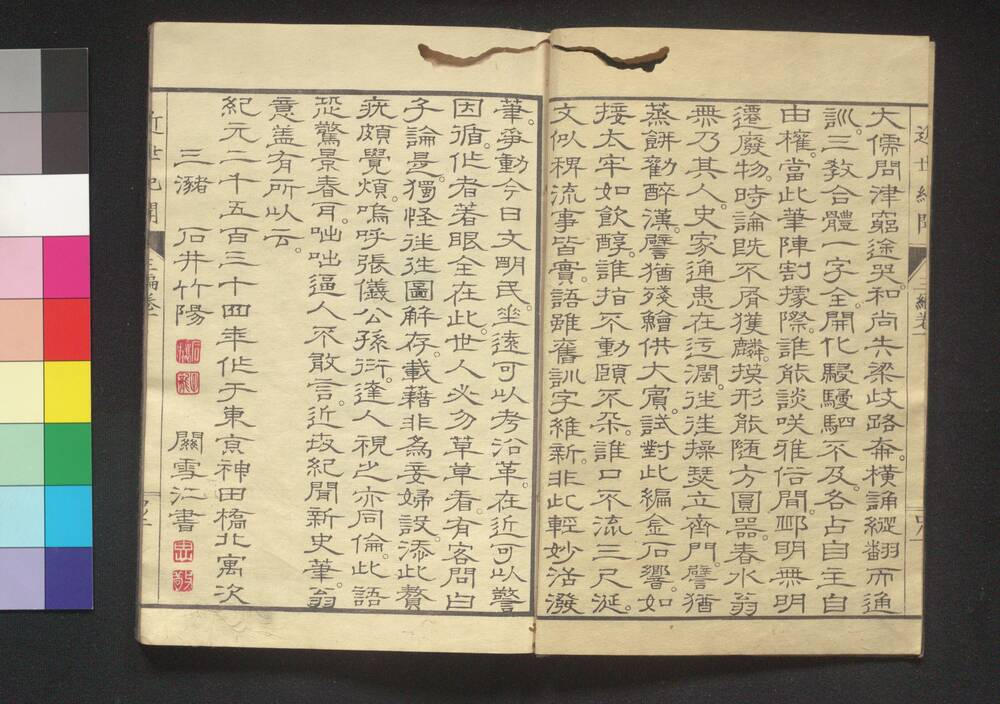 近世紀聞 三編卷一
大儒問津窮途哭。和尚失梁歧路奔。橫誦縱翻而通
訓。三教合體一字全。開化駸駸駟不及。各占自主自
由權。當此筆陣割據際。誰能談咲雅俗間。耶明無明
遷廢物。時論既不屑獲麟。摸形能隨方圓器。春水翁
無乃其人。史家通患在迂濶。往往操瑟立齊門。譬猶
蒸餠勸醉漢。譬猶殘鱠供大賓。試對此編金石響。如
接太牢如飲醇。誰指不動頤不朶。誰口不流三尺涎。
文似稗流事皆實。語雖舊訓字維新。非此輕妙活潑
筆。爭動今日文明民。坐遠可以考沿革。在近可以警
因循。作者著眼全在此。世人必勿草草看。有客問白
子論是。獨怪往往圖解存。載藉非為妾婦設。添此贅
疣頗覺煩。嗚呼張儀公孫衍。達人視之亦同倫。此語
恐驚景春耳。咄咄逼人不敢言。近故紀聞新史筆。翁
意盖有所以云。
紀元二千五百三十四年作于東京神田橋北寓次
三瀦 石井竹陽
關雪江書
近世紀聞 三編卷一